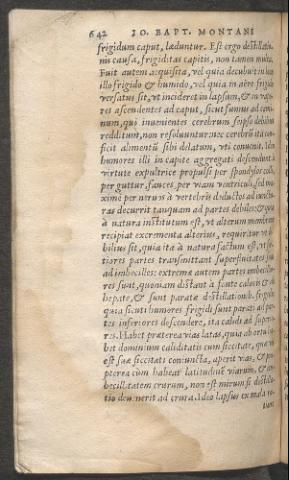 642 IO. BAPT. MONTANI
frigidum caput, læduntur. Est ergo destillatio-
nis causa, frigiditas capitis, non tamen multa.
Fuit autem acquisita, vel quia decubuit in loco
illo frigido & humido, vel quia in aëre frigido
versatus sit, ut inciderit in lapsum, & ut vapo-
res ascendentes ad caput, sicut fumus ad
num, qui invenientes cerebrum seipso debilius
redditum, non resoluuntur: nec cerebrum ita con-
ficit alimentū sibi delatum, uti convenit. Ideo
humores illi in capite aggregati descendunt à
virtute expultrice propulsi per spondyloς colli,
per guttur, fauces, per viam ventriculi, sed ma-
ximè per nervos à vertebris deductos ad iunctu-
ras decurrit tanquam ad partes debiles: & quia
à natura institutum est, ut alterum membrum
recipiat excrementa alterius, requiritur ut de-
bilius sit, quia ita à natura factum est, ut for-
tiores partes transmittant superfluitates suas
ad imbecilles: extremæ autem partes imbecillio-
res sunt, quoniam distant à fonte caloris
hepate, & sunt paratæ destillationib. frigidis
quia sicuti humores frigidi sunt parati ad par-
tes inferiores descendere, ita calidi ad superio-
res. Habet præterea vias latas, quia
bet dominium caliditatis cum siccitate, quæ
est suæ siccitati coniuncta, aperit vias, & pro-
pterea cùm habeat latitudinē viarum, & im-
becillitatem crurum, non est mirum si destilla-
tio devenerit ad crura. Ideo lapsus ex mala
tion